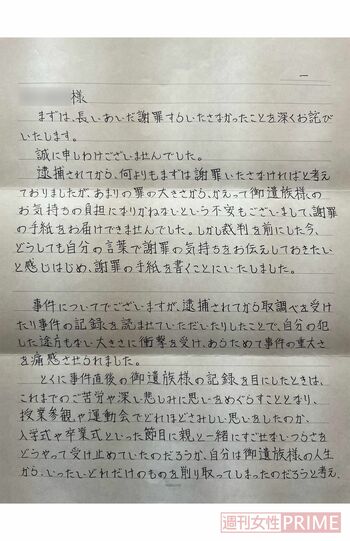 一
様
まずは、長いあいだ謝罪すらいたさなかったことを深くお詫び
いたします。
誠に申しわけございませんでした。
逮捕されてから、何よりもまずは謝罪いたさなければと考え
ておりましたが、あまりの罪の大きさから、かえって御遺族様の
お気持ちの負担になりかねないという不安もございまして、謝罪
の手紙をお届けできませんでした。しかし裁判を前にした今、
どうしても自分の言葉で謝罪の気持ちをお伝えしておきたい
と感じはじめ、謝罪の手紙を書くことにいたしました。
事件についてでございますが、逮捕されてから取調べを受け
たり事件の記録を読ませていただいたりしたことで、自分の犯
した途方もない大きさに衝撃を受け、あらためて事件の重大さ
を痛感させられました。
とくに事件直後の御遺族様の記録を目にしたときは、
これまでのご苦労や深い悲しみに思いをめぐらすこととなり、
授業参観や運動会でどれほどさみしい思いをしたのか、
入学式や卒業式といった節目に親と一緒にすごせないつらさを
どうやって受け止めていたのだろうか、自分は御遺族様の人生
から、いったいどれだけのものを削り取ってしまったのだろうと考え、
週刊女性PRIME